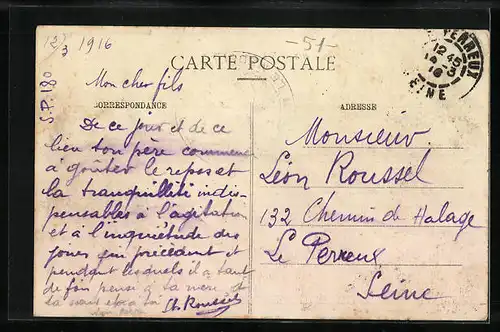 12/3 1916
-51-
PERREUX
12 45
14-3
16
SEINE
CARTE POSTALE
S.P. 180
Mon cher fils
CORRESPONDANCE
ADRESSE
De ce jour et de ce
lieu ton père commence
à goûter le repos et
la tranquillité indis-
pensables à l'agitation
et à l'inquiétude des
jours qui précèdent et
pendant lesquels il a tant
de fois pensé à ta mère et
ta sœur et à toi
Ch. Roussel
Monsieur
Léon Roussel
132 Chemin de Halage
Le Perreux
Seine